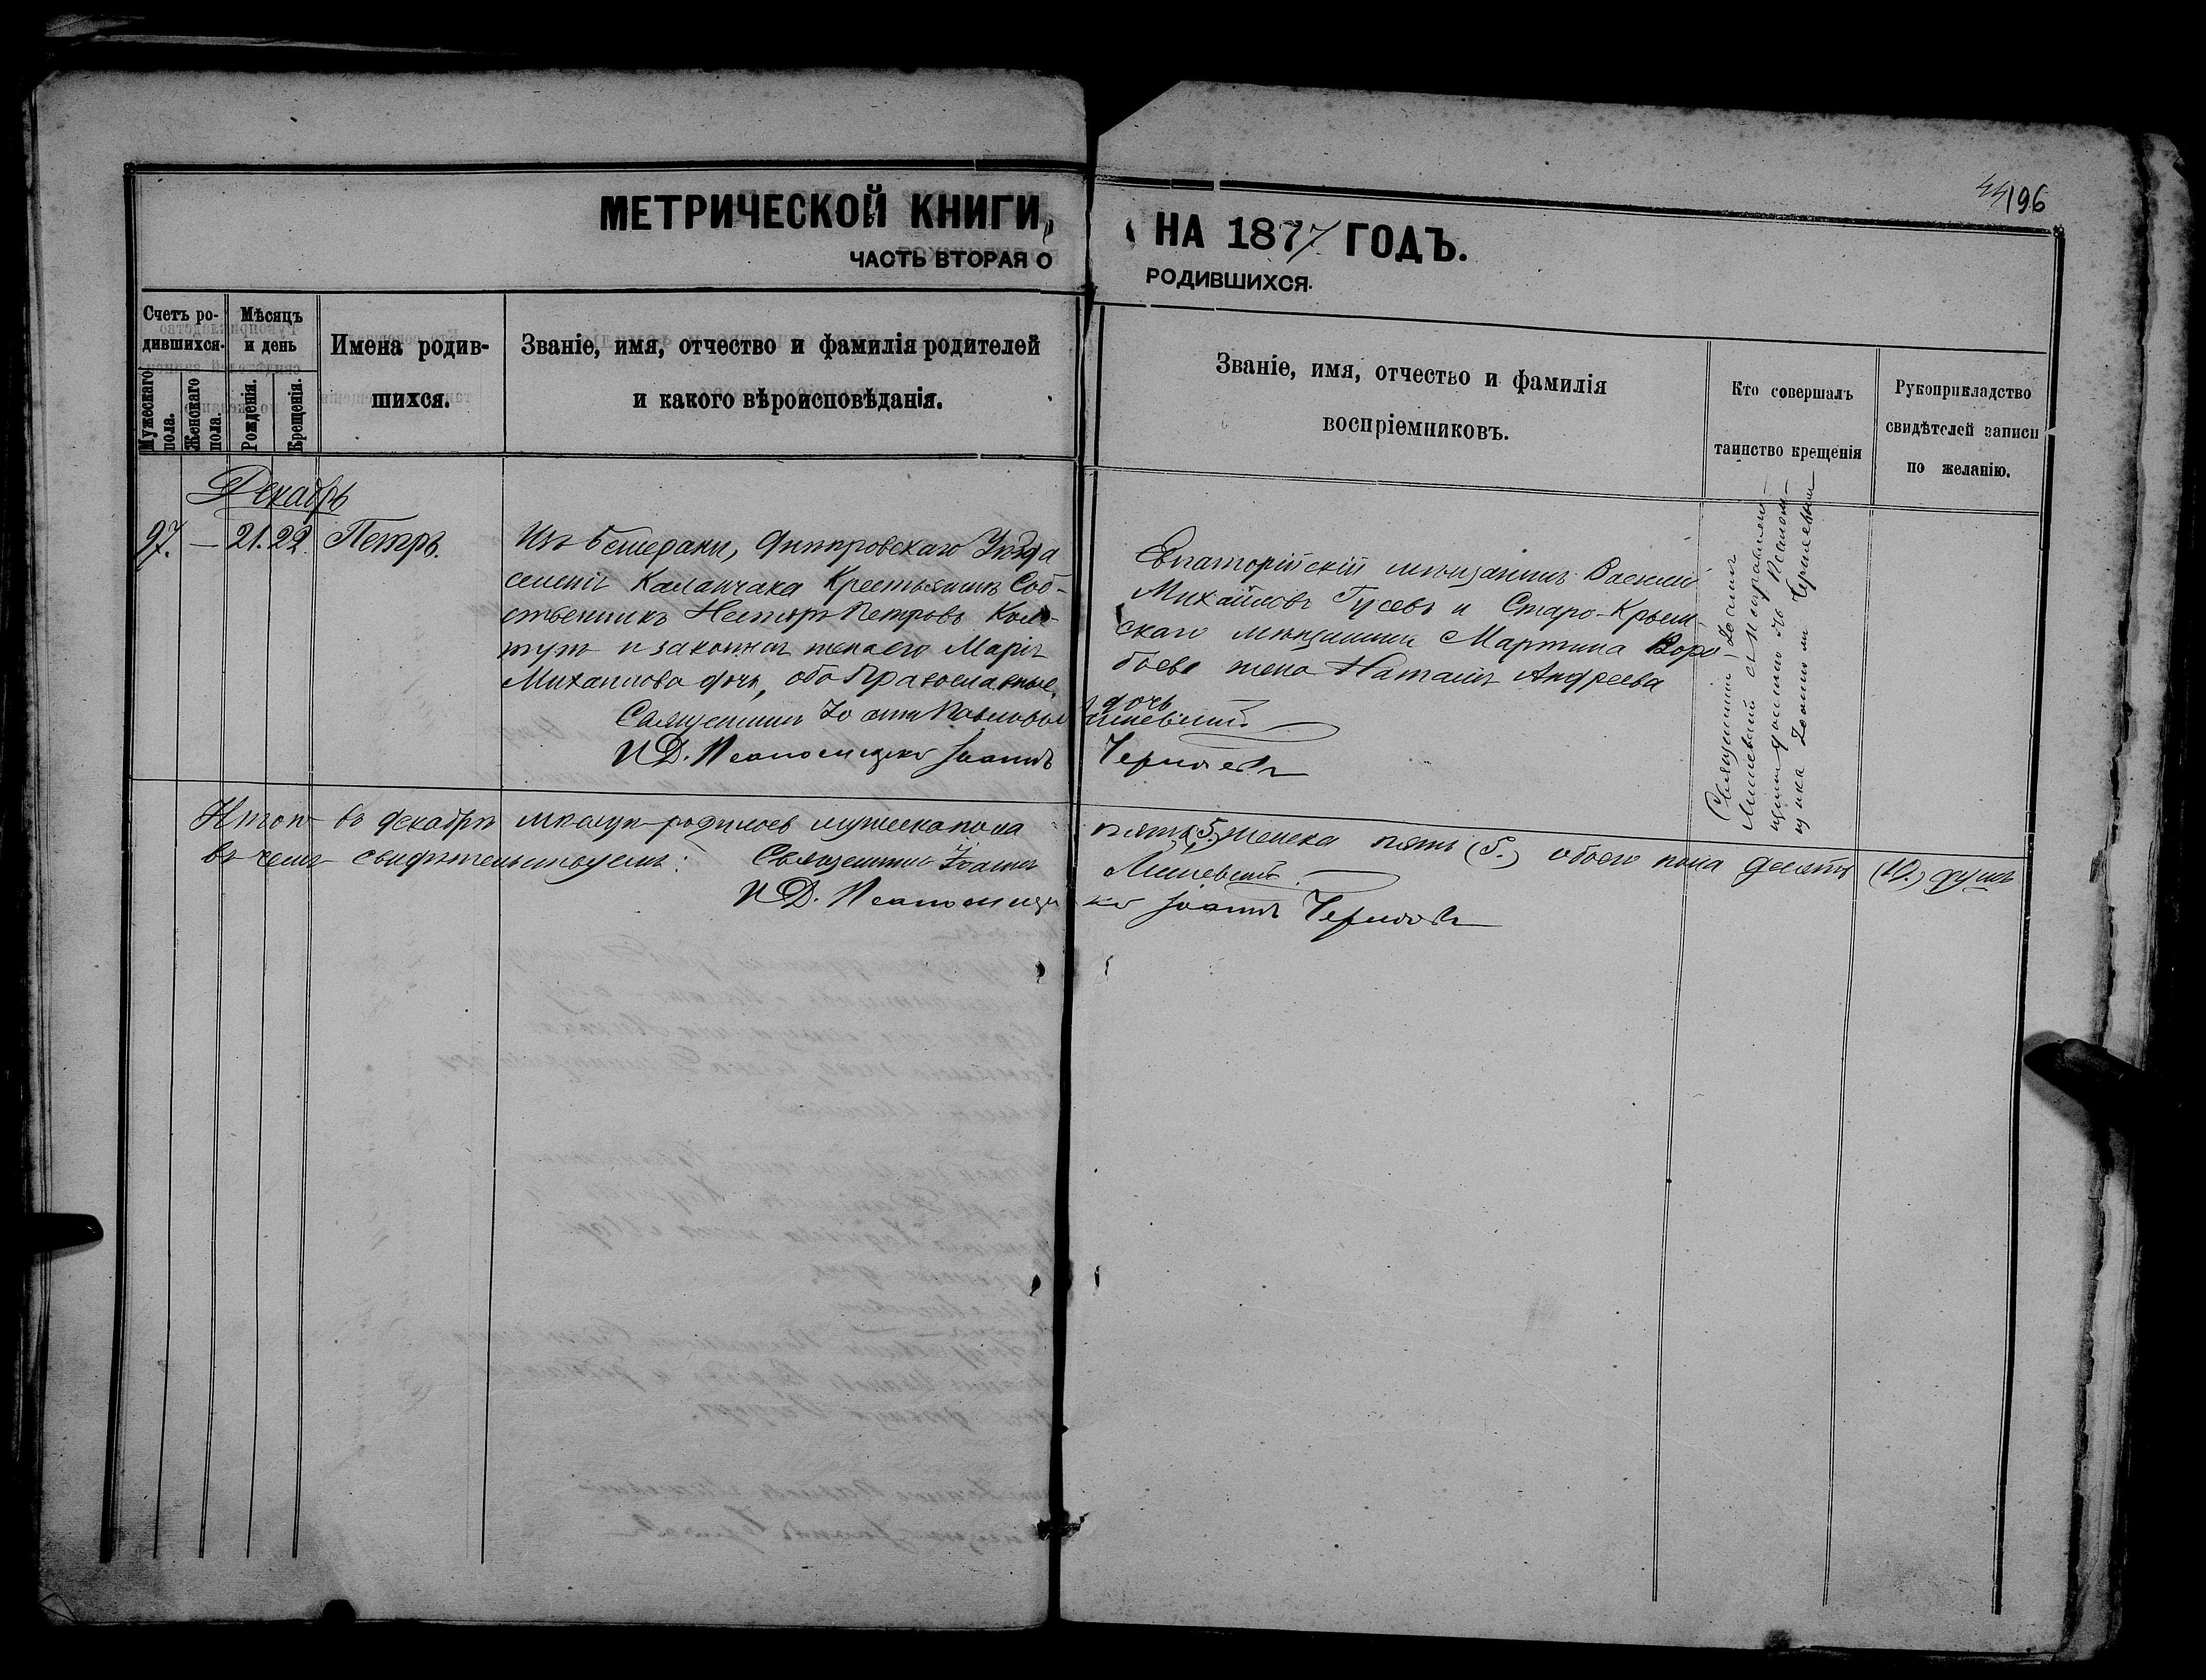 44 196
МЕТРИЧЕСКОЙ КНИГИ, НА 1877 ГОДЪ.
ЧАСТЬ ВТОРАЯ О РОДИВШИХСЯ.
Счетъ ро-
дившихся.
Мужескаго
пола.
Женскаго
пола.
Мѣсяцъ
и день
Рожденія.
Крещенія.
Имена родив-
шихся.
Званіе, имя, отчество и фамилія родителей
и какого вѣроисповѣданія.
Званіе, имя, отчество и фамилія
воспріемниковъ.
Кто совершалъ
таинство крещенія
Рукоприкладство
свидѣтелей записи
по желанію.
Декабрь
97. — 21. 22. Петръ.
Днѣпровскаго Уѣзда
селенія Каланчака Крестьянинъ Соб-
ственникъ Несторъ Петровъ
и законная жена его Марія
Михаилова дочь, оба Православные.
Евпаторійскій мѣщанинъ Василій
Михайловъ Гусевъ и Старо-Крым-
скаго мѣщанина Мартина Воро-
боева жена Наталія Андреева
дочь
Священникъ Іоаннъ
И.Д. Псаломщика Іоаннъ Черняевъ
Священникъ Іоаннъ
Линевскій
Итого въ декабрѣ мѣсяцѣ родилось мужеска пола пять (5.) женска пять (5.) обоего пола десять (10.) душъ
въ чемъ свидѣтельствуемъ: Священникъ Іоаннъ Линевскій
И.Д. Псаломщика Іоаннъ Черняевъ